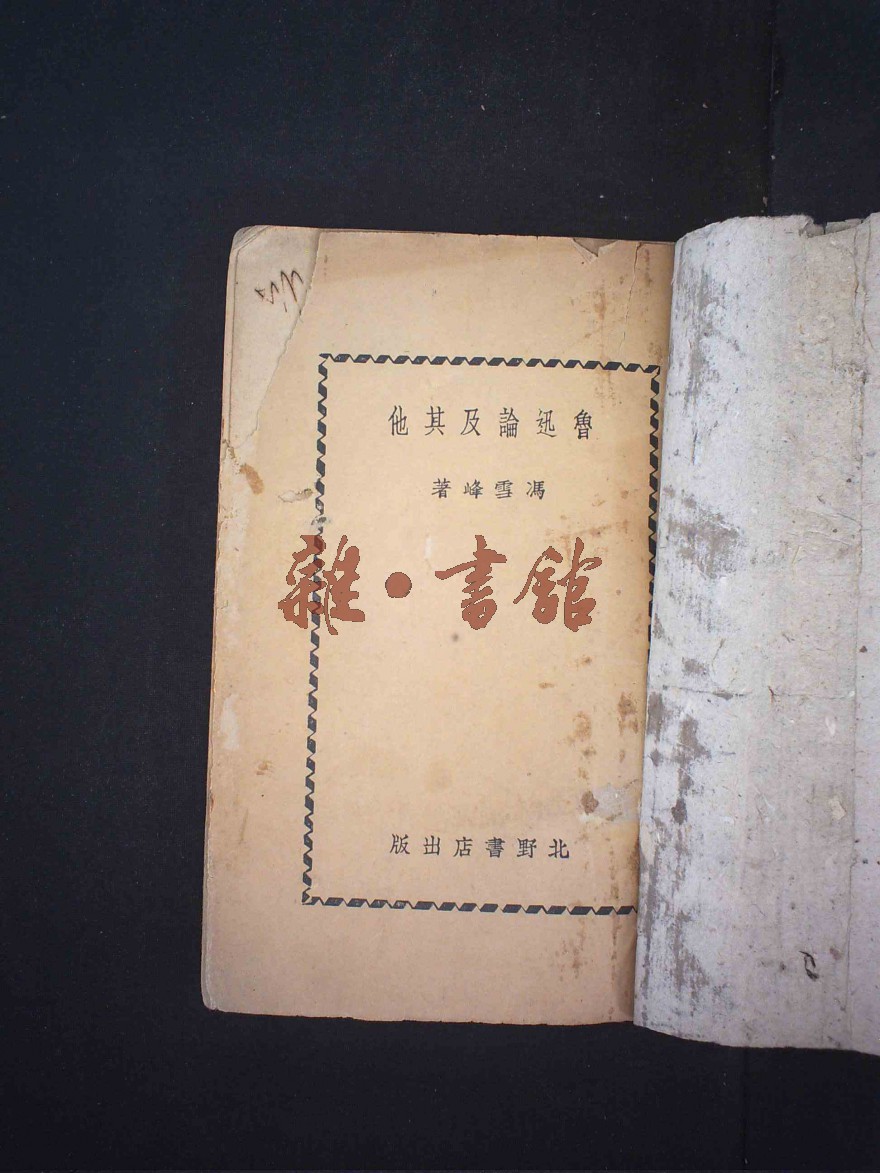 魯迅論及其他
馮雪峰著
雜·書館
北野書店出版